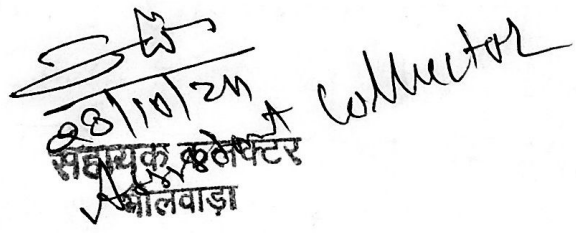 28/10/24
Assistant Collector
सहायक कलेक्टर
भीलवाड़ा